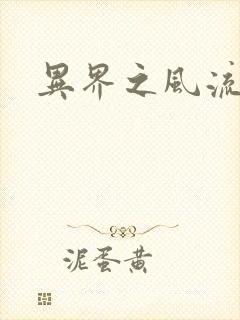 異界之風流
泥蛋黄